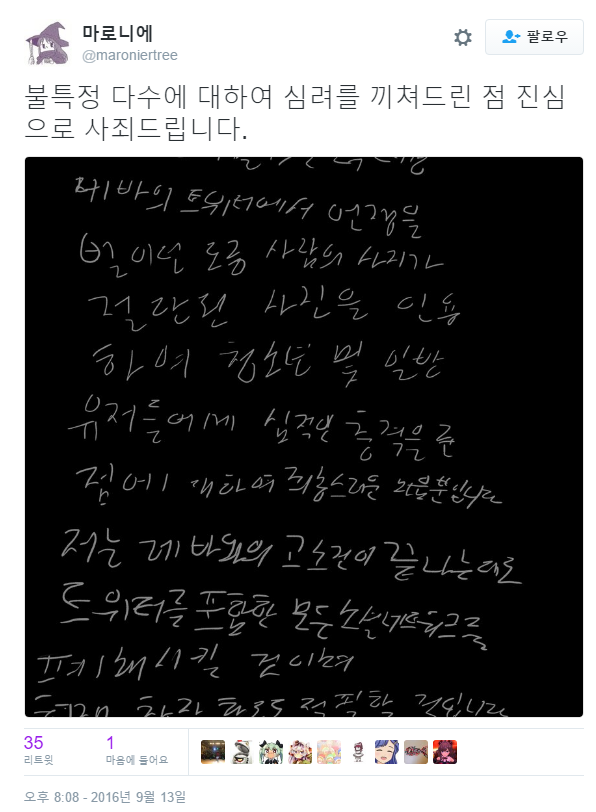 마로니에
@maroniertree
팔로우
불특정 다수에 대하여 심려를 끼쳐드린 점 진심
으로 사죄드립니다.
레바의 트위터에서 언쟁을
벌이던 도중 사람의 사지가
절단된 사진을 인용
하여 청소년 및 일반
유저들에게 심적인 충격을 준
점에 대하여 죄송스러운 마음뿐입니다
저는 레바와의 고소건이 끝나는대로
트위터를 포함한 모든 소셜네트워크를
폐기해시킬 것이며
것입니다
35
리트윗
1
마음에 들어요
오후 8:08 - 2016년 9월 13일